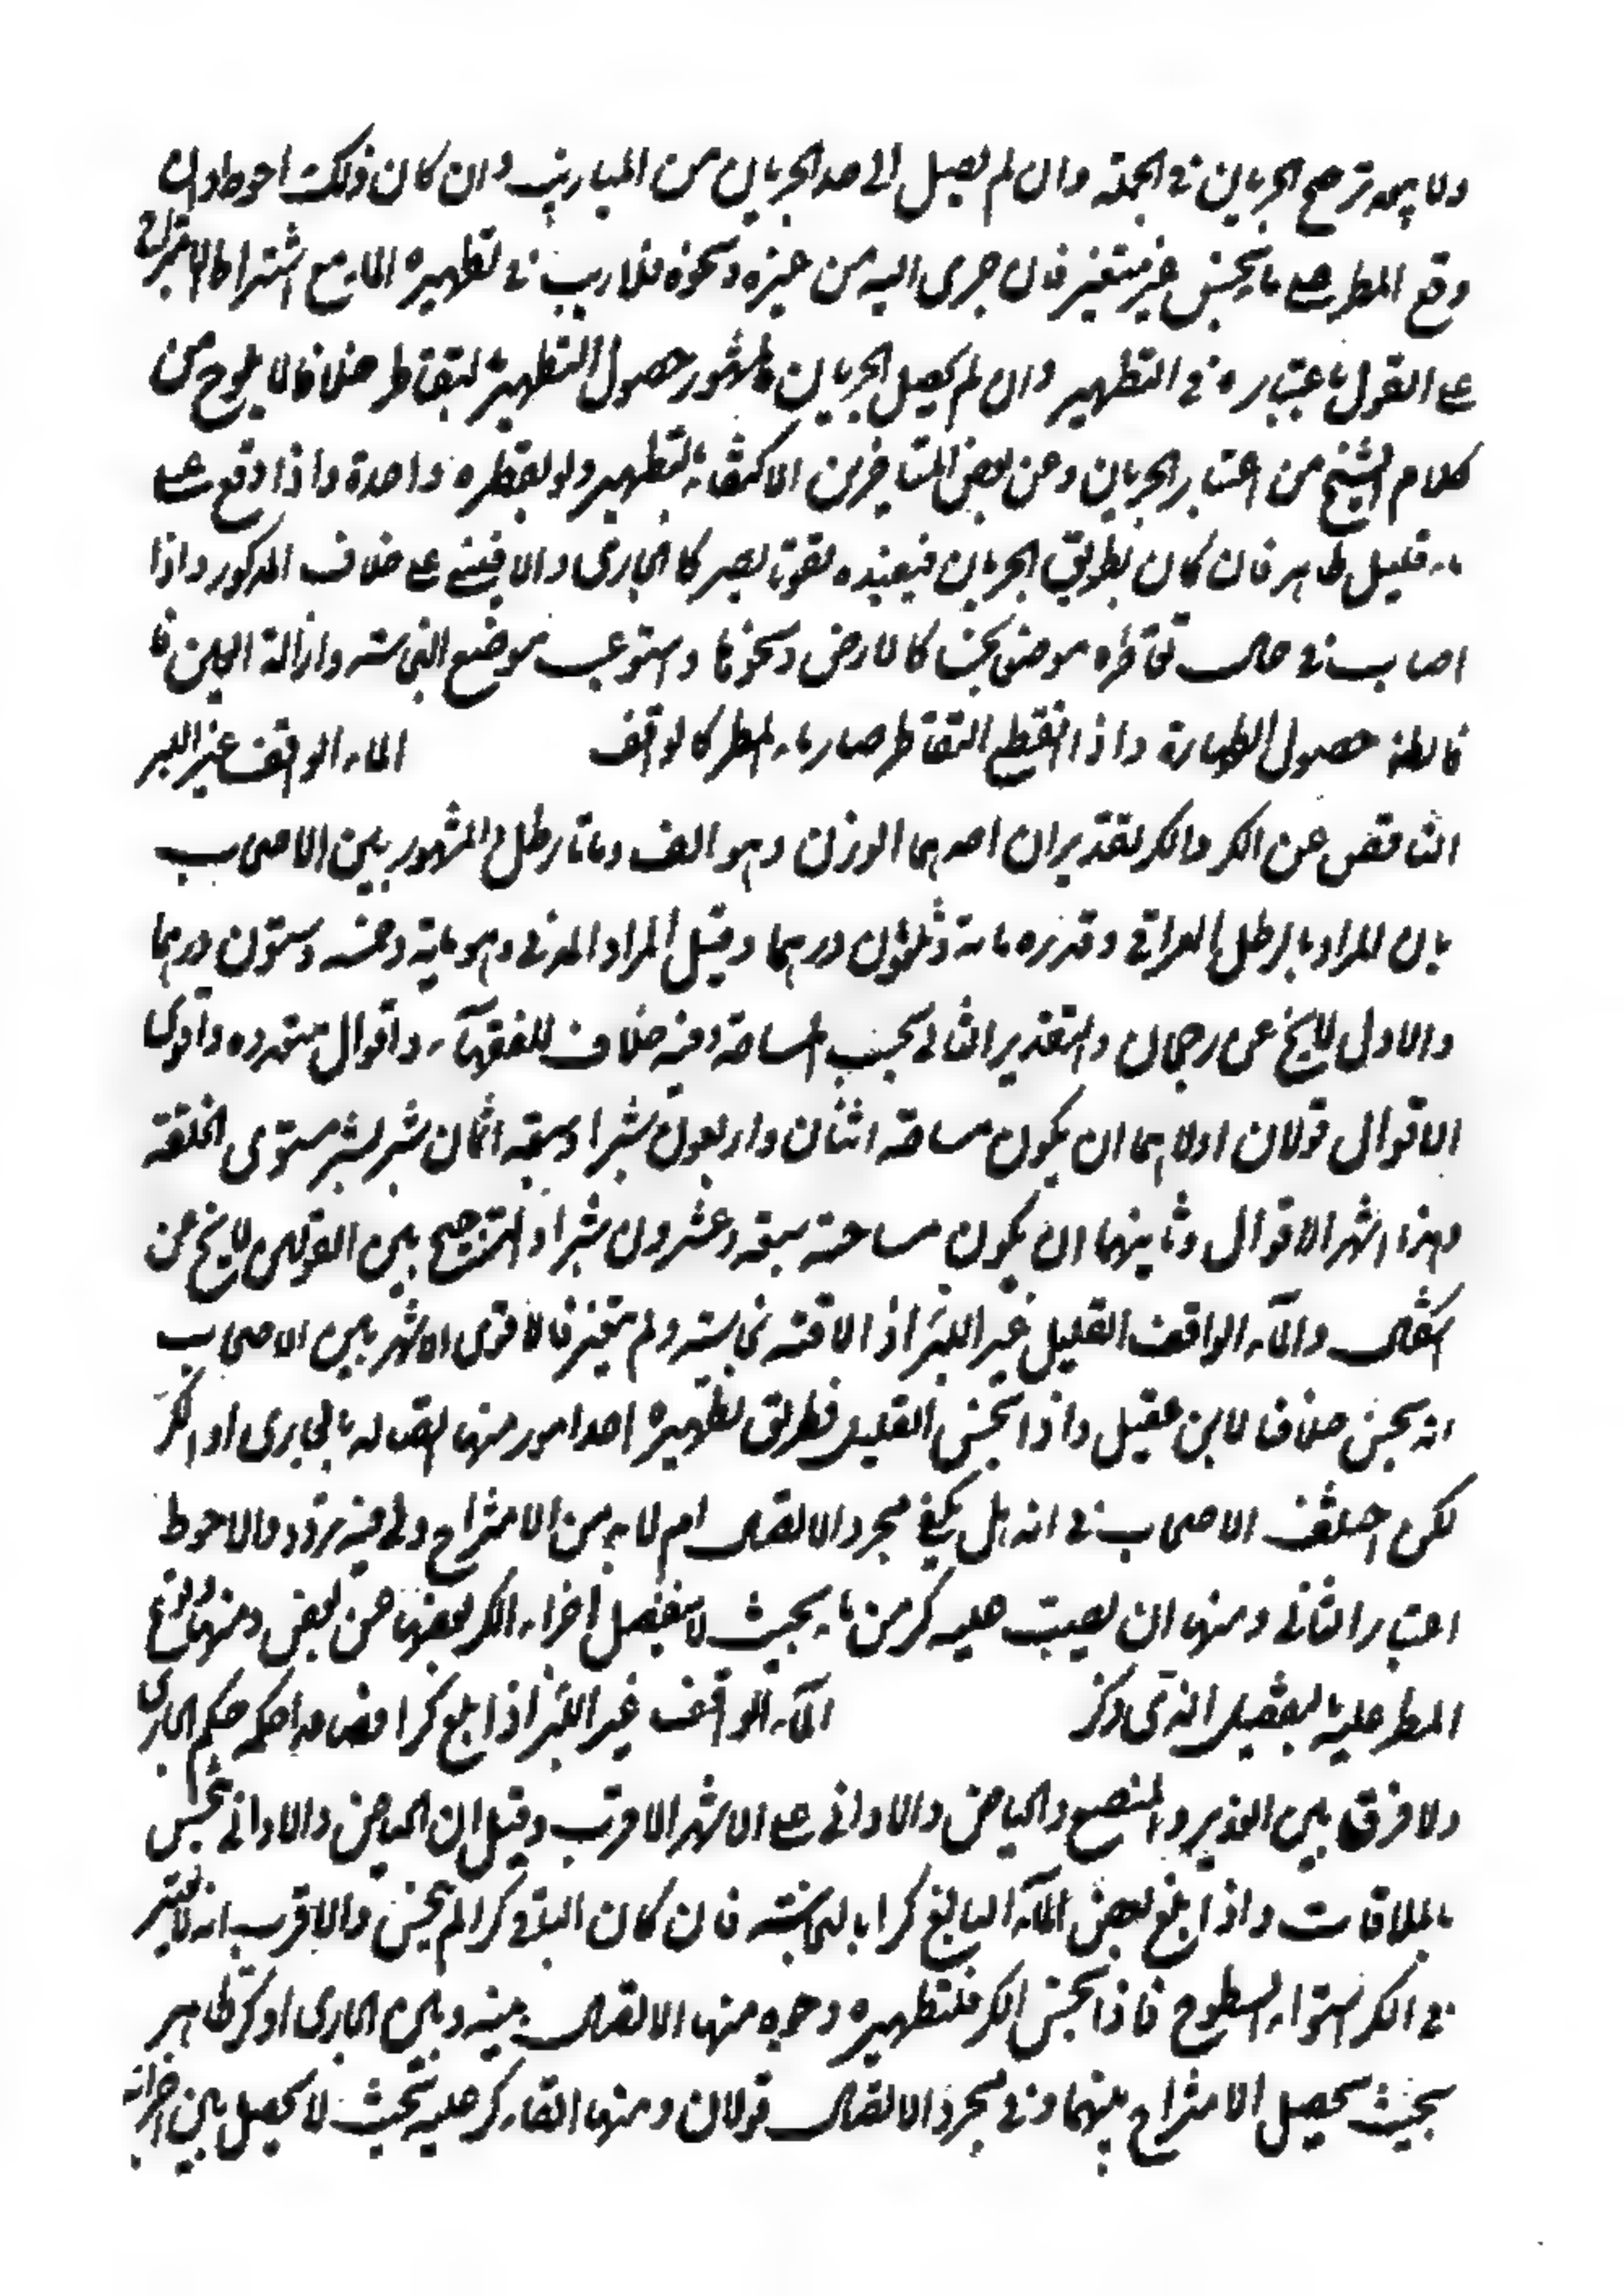 ولا يبعد ترجيح الجريان في الجملة وان لم يصل الى حد الجريان من الميازيب وان كان ذلك احوط وان
وقع المطر على ماء نجس غير متغير فان جرى اليه من ميزاب ونحوه فلا ريب في تطهيره الماء مع اشتراط الامتزاج
على القول باعتباره في التطهير وان لم يحصل الجريان فالمشهور حصول التطهير بالتقاطر خلافا لما يلوح من
كلام الشيخ من اعتبار الجريان وعن بعض المتاخرين الاكتفاء في التطهير ولو بقطرة واحدة واذا وقع على
ماء قليل طاهر فان كان بطريق الجريان فيفيده تقويا يصير كالجاري والا فيبنى على خلاف المذكور واذا
اصاب في حال تقاطره موضعا نجسا كالارض ونحوها واستوعب موضع النجاسة وازالة العين
فالظاهر حصول الطهارة واذا انقطع التقاطر صار ماء المطر كالواقف الماء الواقف غير البئر
الناقص عن الكر والكر تقديران احدهما الوزن وهو الف ومائتا رطل والمشهور بين الاصحاب
بان المراد بالرطل العراقي وقدره مائة وثلثون درهما وقيل المراد المدني وهو مائة وخمسة وتسعون درهما
والاول لا يخ عن رجحان والتقدير الثاني بحسب المساحة وفيه خلاف للفقهاء واقوال متعددة واقوى
الاقوال قولان اولاهما ان يكون مساحته اثنان واربعون شبرا وسبعة اثمان شبر بشبر مستوى الخلقة
وهذا اشهر الاقوال وثانيهما ان يكون مساحته سبعة وعشرون شبرا والترجيح بين القولين لا يخ عن
اشكال والماء الواقف القليل غير البئر اذا لاقته نجاسة ولم يتغير فالاقوى الاشهر بين الاصحاب
انه ينجس خلافا لابن عقيل واذا نجس القليل فطريق تطهيره احد امور منها اتصاله بالجاري او الكر
لكن اختلف الاصحاب في انه هل يكفي مجرد الاتصال ام لا بد من الامتزاج ولي فيه تردد والاحوط
اعتبار الثاني ومنها ان يصب عليه كر من ماء بحيث لا ينفصل اجزاء الكر بعضها عن بعض ومنها وقوع
المطر عليه بالتفصيل الذي ذكر الماء الواقف غير البئر اذا بلغ كرا فصاعدا حكمه حكم الجاري
ولا فرق بين الغدير والمصنع والحياض والاواني على الاشهر الاقرب وقيل ان الحياض والاواني تنجس
بالملاقات واذا بلغ بعض الماء البالغ كرا بالنجاسة فان كان الباقي كرا لم ينجس والاقرب انه لا يعتبر
في الكر استواء السطوح فاذا نجس الكر فلتطهيره وجوه منها الاتصال بينه وبين الجاري او كر طاهر
بحيث يحصل الامتزاج بينهما وفي مجرد الاتصال قولان ومنها القاء كر عليه بحيث لا يحصل بين اجزائه